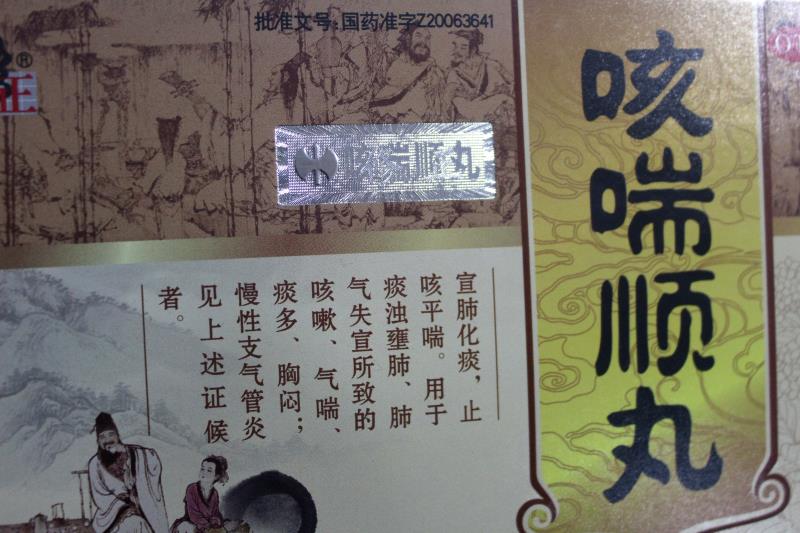 批准文号:国药准字Z20063641
咳喘顺丸
咳喘顺丸
宣肺化痰，止
咳平喘。用于
痰浊壅肺、肺
气失宣所致的
咳嗽、气喘、
痰多、胸闷；
慢性支气管炎
见上述证候
者。